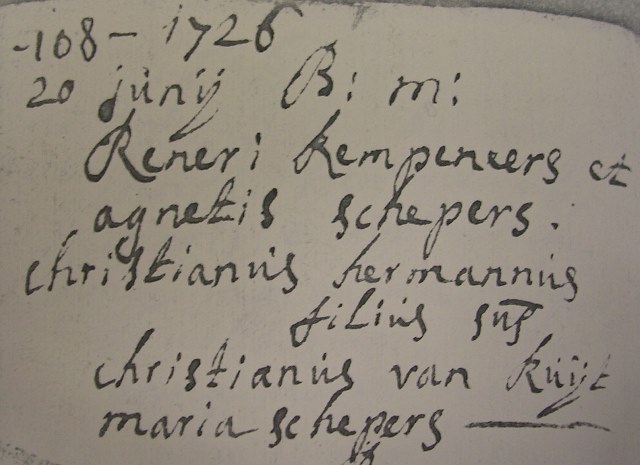 -108- 1726
20 junij B: m:
Reneri kempeneers et
agnetis schepers.
christianus hermannus
filius
christianus van kuijt
maria schepers